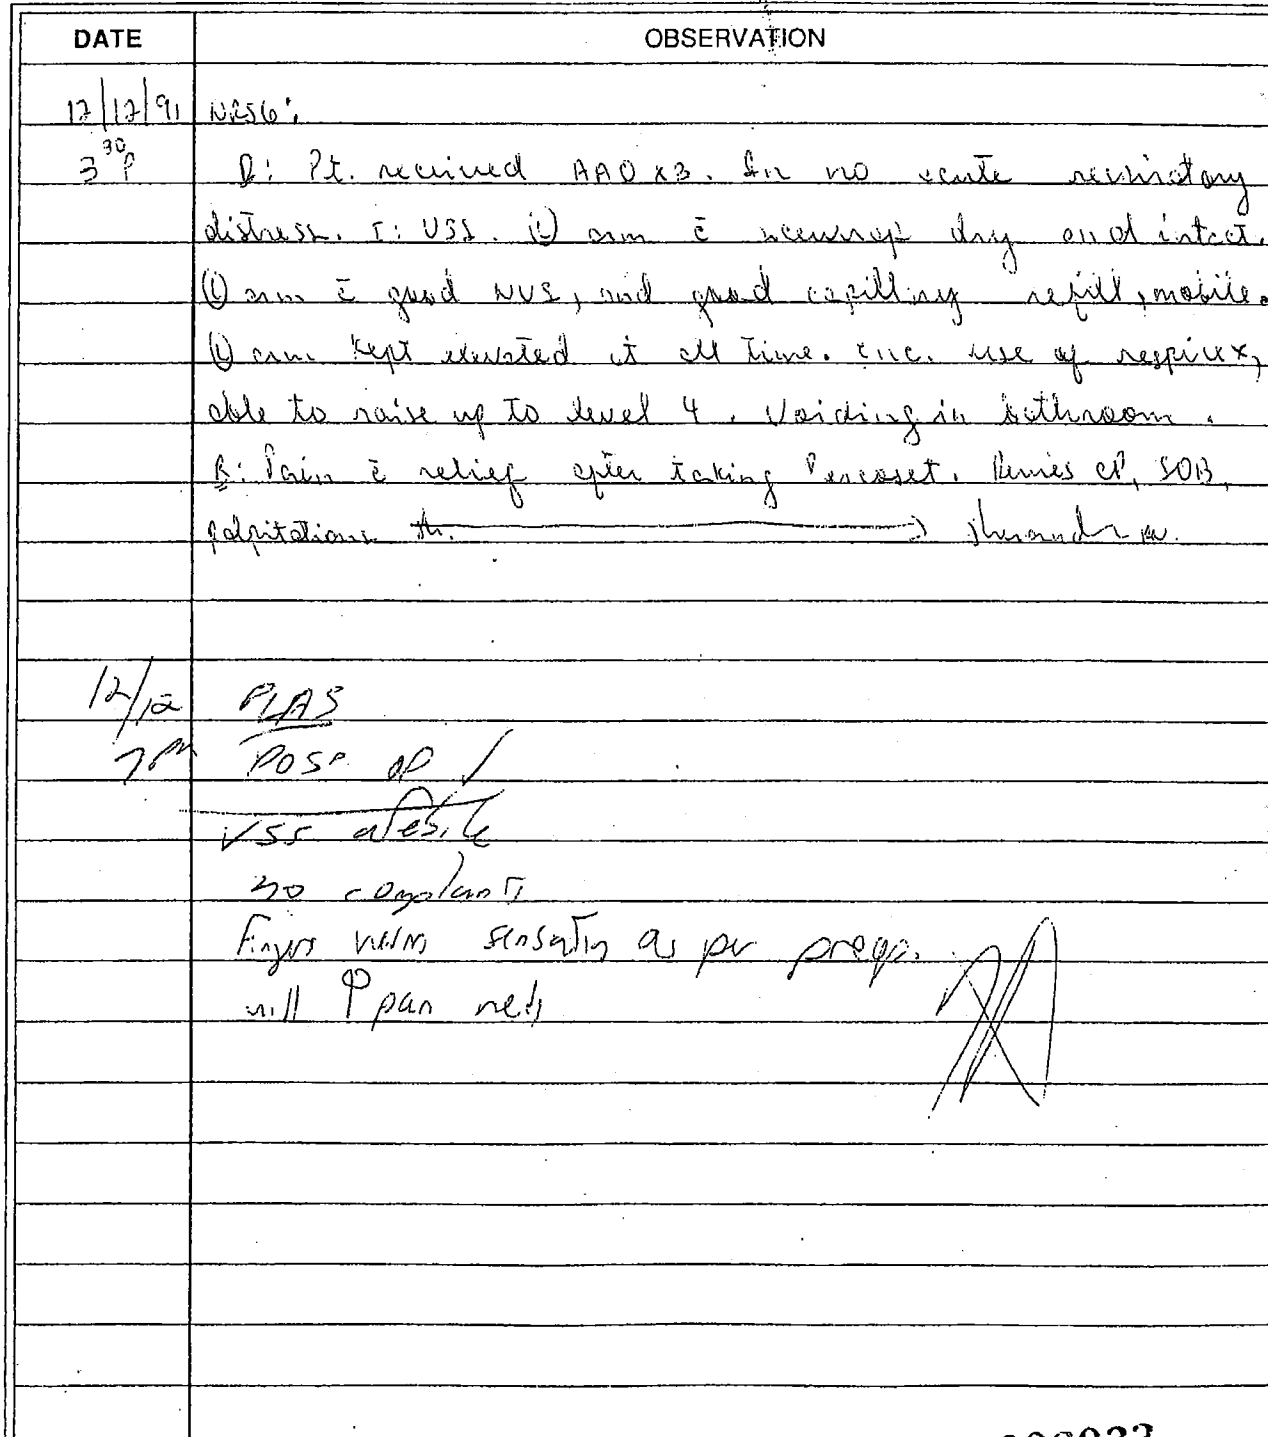 DATE OBSERVATION
12/12/91 NRSG:
3 30 P D: Pt. received AAO x3. In no acute respiratory
distress. I: VSS. (L) arm c̄ acewrap dry and intact.
(L) arm c̄ good NVS, and good capillary refill, mobile.
(L) arm kept elevated at all time. Enc. use of respirex,
able to raise up to level 4. Voiding in bathroom.
R: Pain c̄ relief after taking Percoset. Denies CP, SOB,
palpitations
12/12 PLAS
7 PM POST OP ✓
VSS afebrile
no complaints
Fingers warm sensation as per preop.
will ↑ pain meds